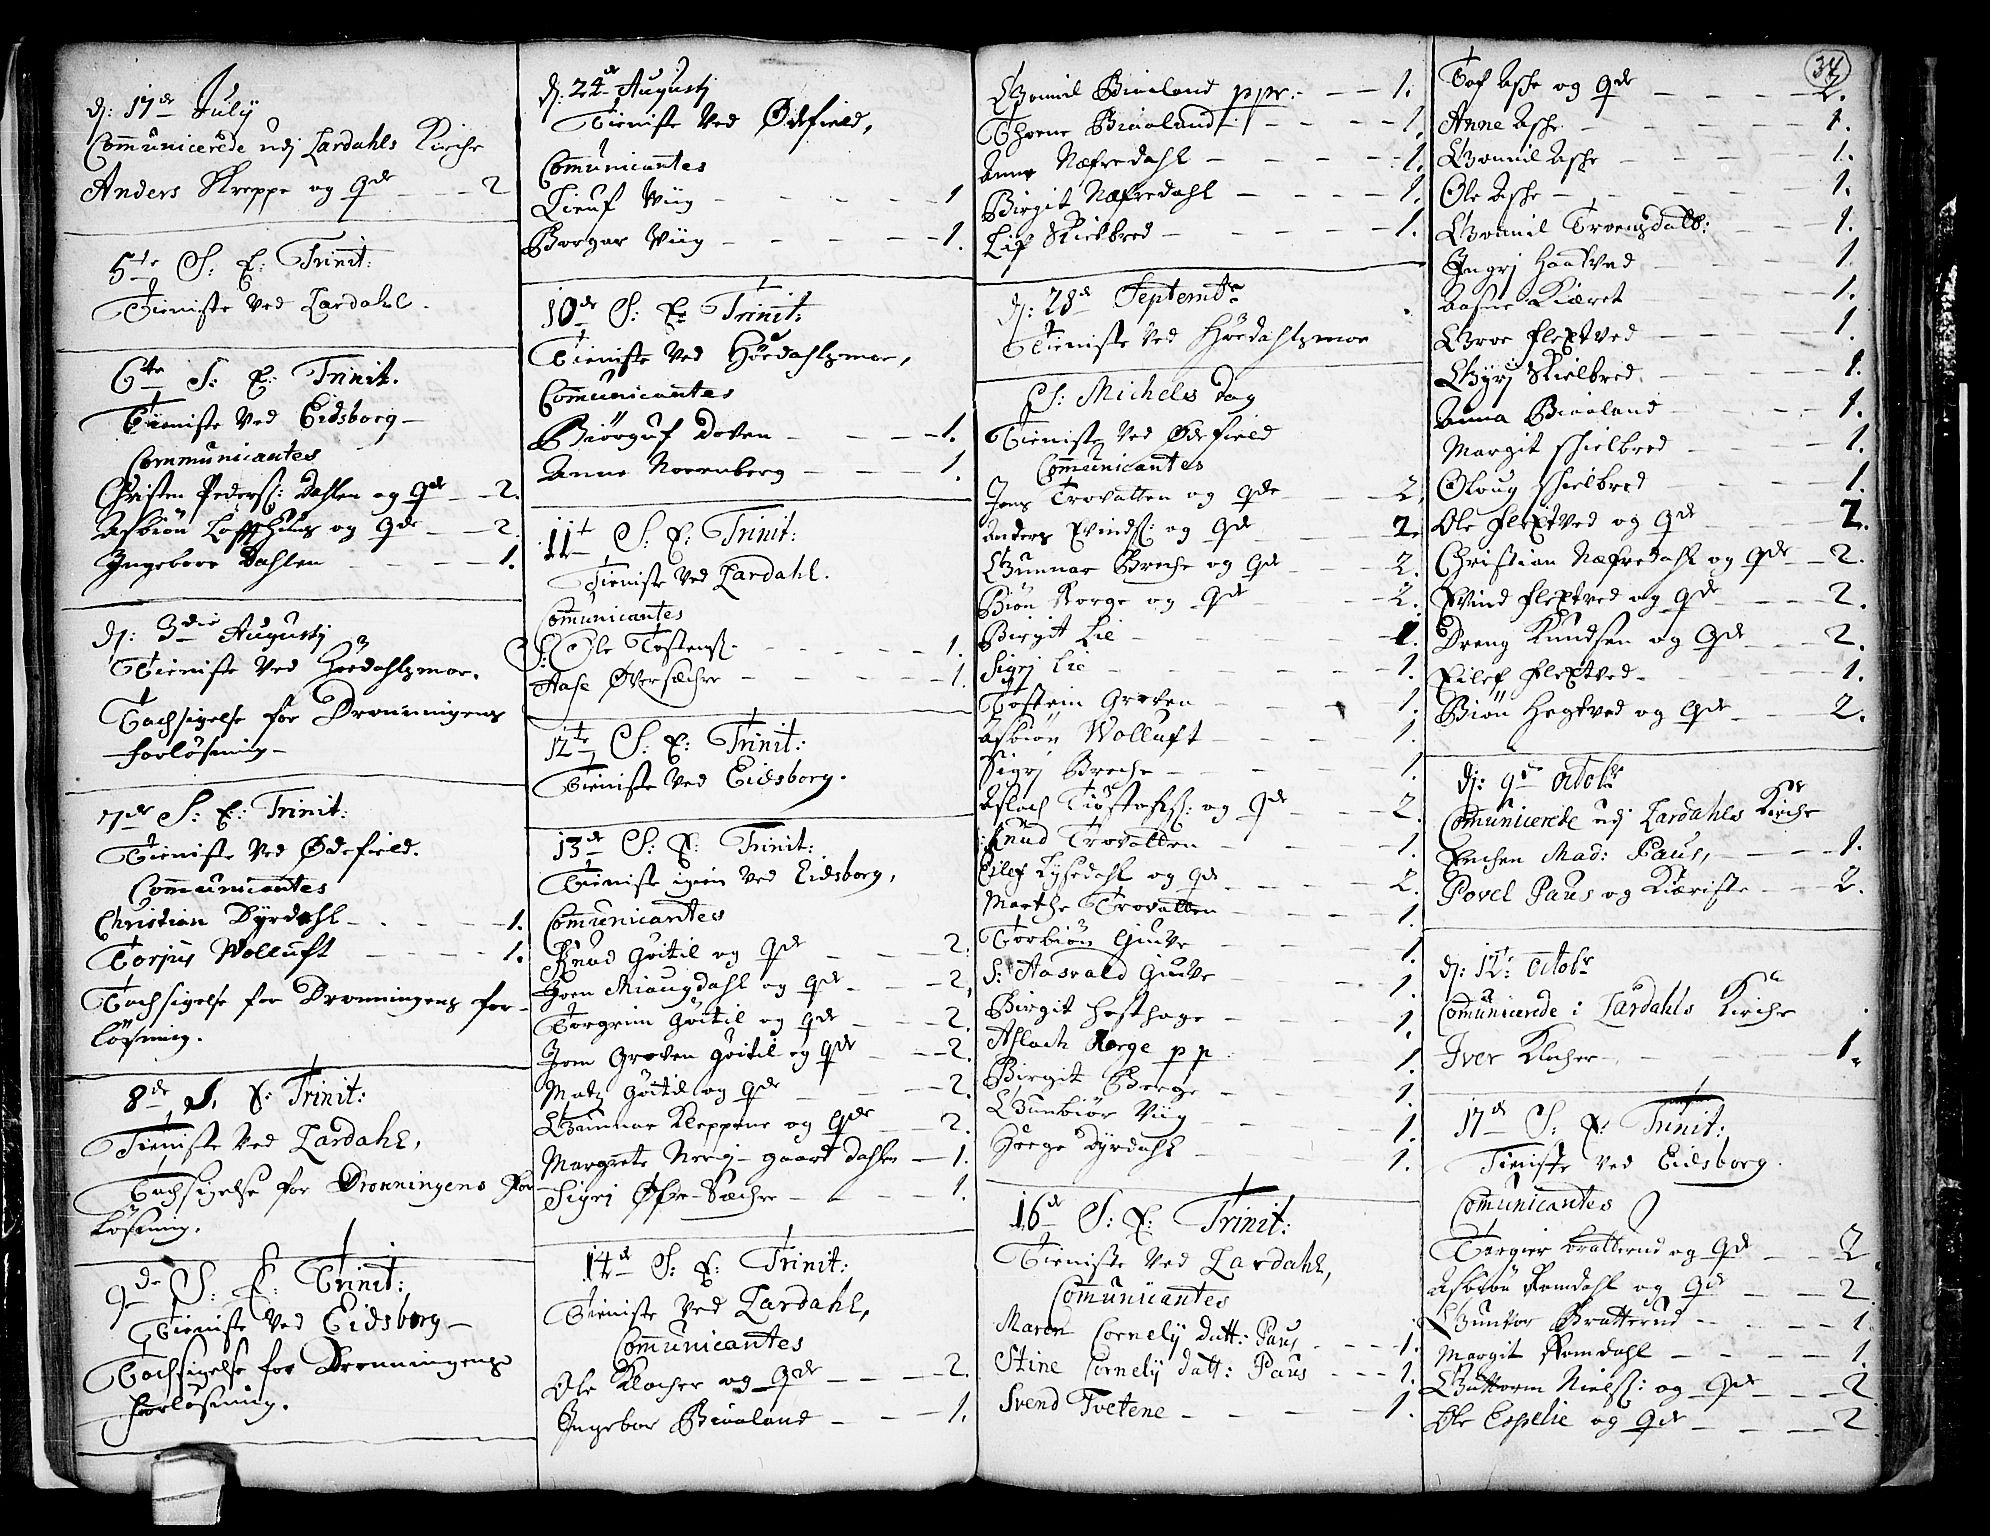 dj: 17de July
Communicerede udj Lardahls Kirche
Anders Kreppe og Qde - - - 2
5te S: E: Trinit:
Tieniste ved Lardahl.
6te S: E: Trinit.
Tieniste ved Eidsborg -
Communicantes
Christen Peders: Dahlen og Qde - - 2.
Asbiön Loffthuus og Qde - - 2.
Ingeborr Dahlen - - - 1.
dj: 3die Augustj
Tieniste ved Höedahlsmoe.
Tachsigelse for Dronningens
forlösning -
7de S: E: Trinit:
Tieniste ved Ødefield.
Communicantes
Christian Dyrdahl - - - 1.
Torjus Wolluft - - - 1.
Tachsigelse for Dronningens for-
lösning.
8de S. E: Trinit:
Tieniste ved Lardahl,
Tachsigelse for Dronningens for-
lösning.
9de S: E: Trinit:
Tieniste ved Eidsborg -
Tachsigelse for Dronningens
forlösning.
dj: 24de Augustj
Tieniste ved Ødefield,
Comunicantes
Lieuf Wiig - - - 1
Borgar Wiig - - - 1.
10de S: E: Trinit:
Tieniste ved Höedahlsmoe,
Comunicantes
Biörguf Doven - - - 1.
Anne Norenberg - - - 1.
11te S: E: Trinit:
Tieniste ved Lardahl.
Comunicantes
S: Ole Tostens: - - - 1.
Aase Øversæchre - - - 1.
12te S: E: Trinit:
Tieniste ved Eidsborg.
13de S: E: Trinit:
Tieniste igien ved Eidsborg,
Comunicantes
Knud Göitil og Qde - - - 2.
Joen Miaugdahl og Qde - - - 2,
Torgrim Göitil og Qde - - - 2.
Jon Groven Göitil og Qde - - - 2.
Matz Göitil og Qde - - - 2.
Gunnar Kleppene og Qde - - 2.
Margrete gaard Dahlen - - 1.
Sigrj Øfre-Sæchre - - - 1.
14de S: E: Trinit:
Tieniste ved Lardahl,
Comunicantes
Ole Klocher og Qde - - - 2.
Ingebor Biaaland - - - 1.
Gonnil Biaaland ppr. - - - 1.
Thorne Biaaland - - - 1.
Anne Næfredahl - - - 1.
Birgit Næfredahl - - - 1.
Lif Skielbred - - - 1.
dj: 28de Septembr
Tieniste ved Höedahlsmoe
S: Michels Dag
Tieniste ved Ødefield
Comunicantes
Jens Trovatten og Qde - - 2.
Anders Evinds: og Qde - - 2.
Gunnar Breche og Qde - - 2.
Biön Korge og Qde - - 2.
Birgit Lie - - - 1.
Sigrj Lie - - - 1.
Tostein Groven - - - 1.
Asbiön Wolluft - - - 1.
Sigrj Breche - - - 1
Aslach Tiöstofs: og Qde - - 2.
Knud Trovatten - - - 1.
Eilef Lysedahl og Qde - - 2.
Marthe Trovatten - - - 1.
Torbiön Giuve - - - 1.
S: Aasvald Giuve - - - 1.
Birgit Hesthage - - - 1.
Aslach Korge pp. - - - 1.
Birgit Berge - - - 1.
Gunbiör Viig - - - 1.
Hege Dyrdahl - - - 1.
16de S: E: Trinit:
Tieniste ved Lardahl,
Comunicantes
Maren Cornelÿ datt: Paus - - - 1.
Stine Cornelÿ datt: Paus - - - 1.
Svend Tvetene - - - 1.
34
Tof Aasse og Qde - - - 2.
Anne Aasse - - - 1.
Gonnil Aasse - - - 1.
Ole Aasse - - - 1.
Gonnil Troensdatt: - - 1.
Ingrj Haatved - - - 1.
Aasne Kiæret - - - 1.
Groe Flextved - - - 1.
Gyrj Skielbred - - - 1.
Anna Biaaland - - - 1.
Margit Skielbred - - - 1.
Oloug Skielbred - - - 1.
Ole Flextved og Qde - - - 2.
Christian Næfredahl og Qde - - 2.
Evind Flextved og Qde - - - 2.
Dreng Knudsen og Qde - - - 2.
Eilef Flextved - - - 1.
Biön Hegtved og Qde - - - 2.
dj: 9de Octobr
Comunicerede udj Lardahls Kirche
Enchen Mad: Paus, - - - 1.
Povel Paus og Kiæriste - - 2.
dj: 12te Octobr
Comunicerede i Lardahls Kirche
Iver Klocher - - - 1.
17de S: E: Trinit:
Tieniste ved Eidsborg.
Comunicantes
Torgier Bratterud og Qde - - 2
Asbiön Romdahl og Qde - - 2
Guntor Bratterud - - - 1.
Margit Romdahl - - - 1
Guttorm Niels: og Qde - - 2
Ole Espelie og Qde - - - 2.